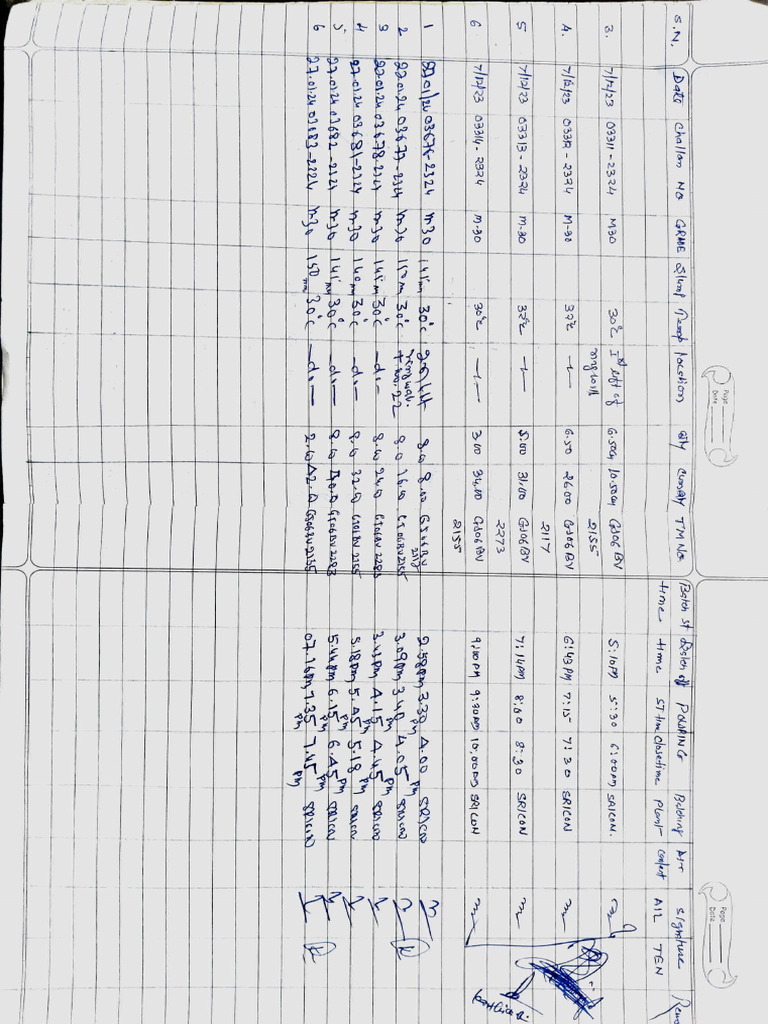 Page
Date
Page
Date
S.N. Date Challan No GRADE Slump Temp location Qty CumQty TM NO Batch st time time POURING ST time Closetime Batching Plant Air Content Signature AIL TEN
3. 7/12/23 03311-2324 M30 30°C Ist lift of 6.50 10.50 GJ06BV 2155 5:10PM 5:30 6:00PM SRICON.
4. 7/12/23 03312-2324 M-30 32°C 6.50 26.00 GJ06BV 2117 6:43PM 7:15 7:30 SRICON
5 7/12/23 03313-2324 M-30 32°C 5.00 31.00 GJ06BV 2273 7:14PM 8:00 8:30 SRICON
6 7/12/23 03314-2324 M-30 30°C 3.00 34.00 GJ06BV 2155 9:10PM 9:30PM 10:00PM SRICON
1 22/01/24 03676-2324 M30 30°C 8.0 8.00 GJ06BV 2.58PM 3.30 4.00 PM SRICON
2 22.01.24 03677-2324 M30 150mm 30°C 8.0 16.00 GJ06BV2155 3.09PM 3.40 4.05 PM SRICON
3 22.01.24 03678-2324 M30 30°C -do- 8.00 24.0 GJ06BV 2283 3.43PM 4.15 4.45 PM SRICON
4 27.01.24 03681-2324 M30 140mm 30°C -do- 8.0 32.0 GJ06BV 2155 5.18PM 5.45 5.18 PM SRICON
5 27.01.24 03682-2324 M30 30°C -do- 8.00 40.0 GJ06BV 2283 5.44PM 6.15 6.45 PM SRICON
6 27.01.24 03683-2224 M30 150mm 30°C -do- 2.00 42.0 GJ06BV2155 07.16PM 7.35 7.45 PM SRICON